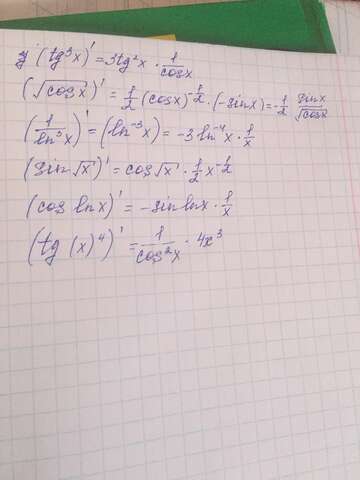 y' (tg³x)' = 3tg²x · 1/cosx
(√cosx)' = 1/2 (cosx)^-1/2 · (-sinx) = -1/2 sinx/√cosx
(1/ln³x)' = (ln⁻³x) = -3ln⁻⁴x · 1/x
(sin√x)' = cos√x · 1/2 x^-1/2
(cos lnx)' = -sinlnx · 1/x
(tg (x)⁴)' = 1/cos²x · 4x³